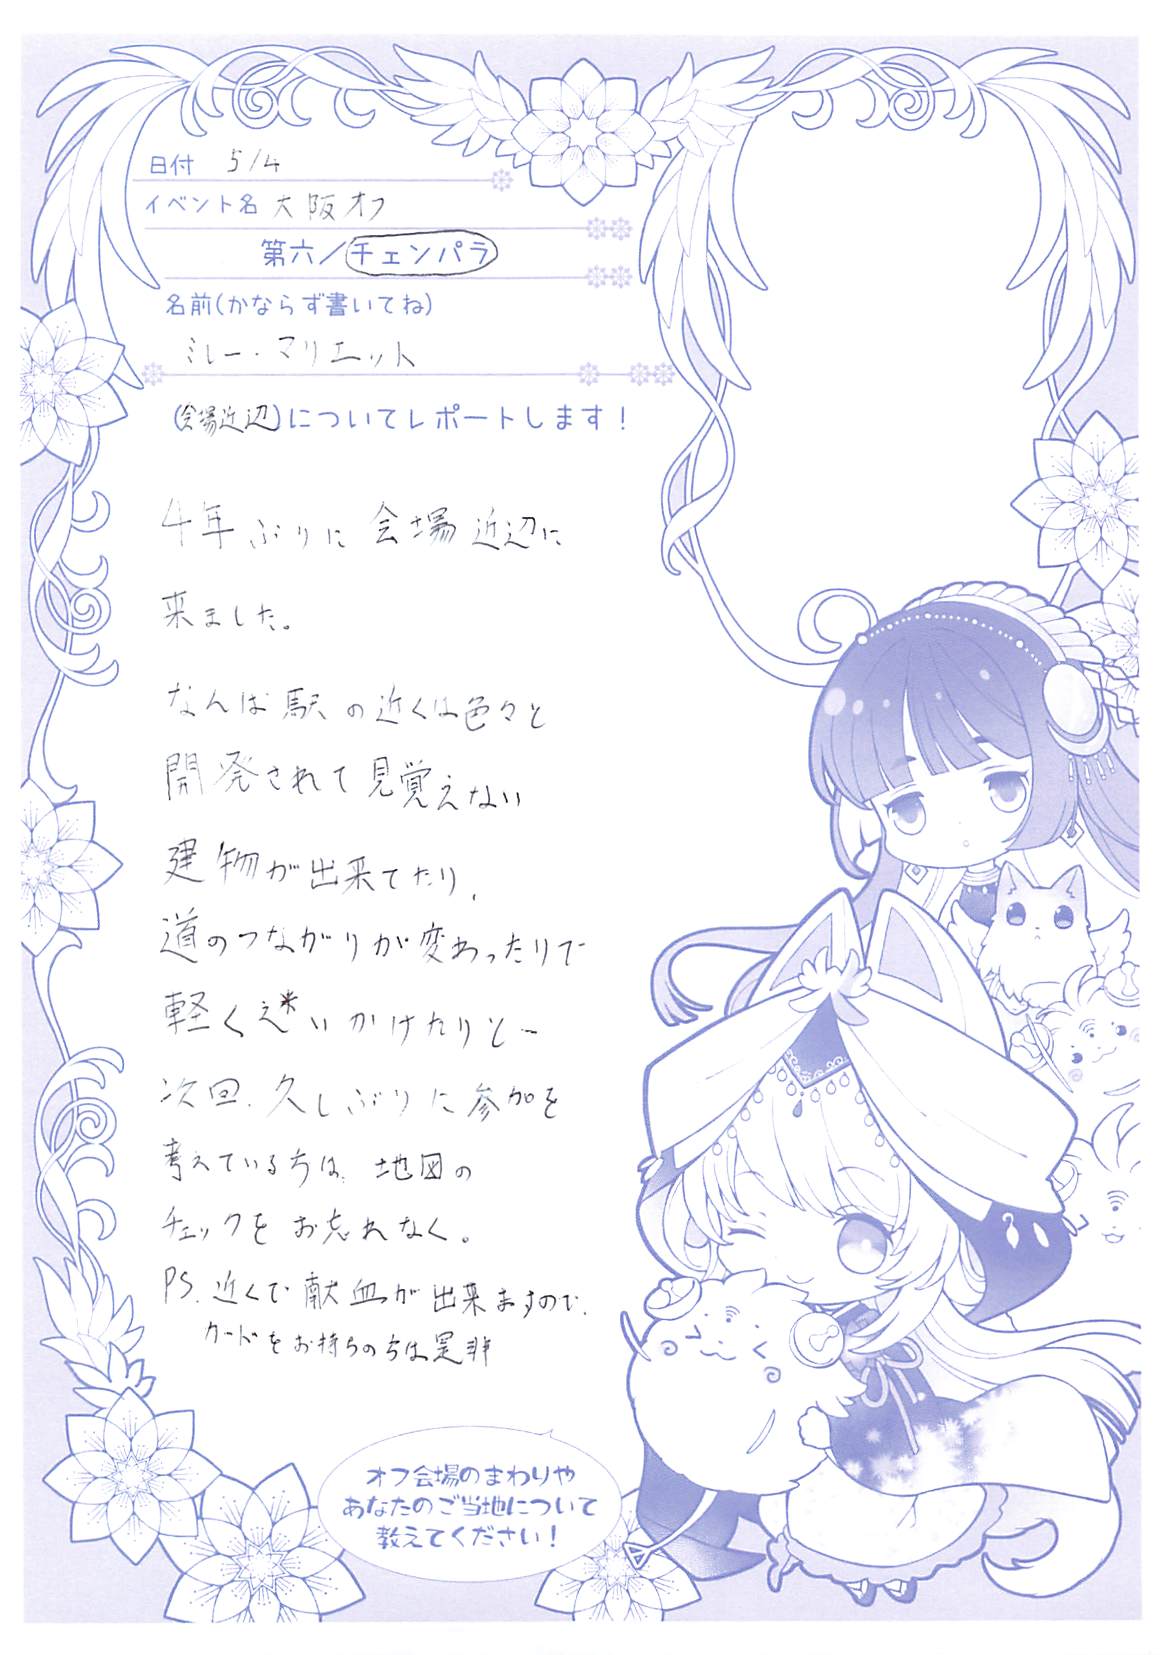 日付 5/4
イベント名 大阪オフ
第六/チェンパラ
名前(かならず書いてね)
ミレー・マリエット
(会場近辺)についてレポートします!
4年ぶりに会場近辺に
来ました。
なんば駅の近くは色々と
開発されて見覚えない
建物が出来てたり、
道のつながりが変わったりで
軽く迷いかけたりと…
次回、久しぶりに参加を
考えている方は、地図の
チェックをお忘れなく。
PS. 近くで献血が出来ますので、
カードをお持ちの方は是非
オフ会場のまわりや
あなたのご当地について
教えてください!